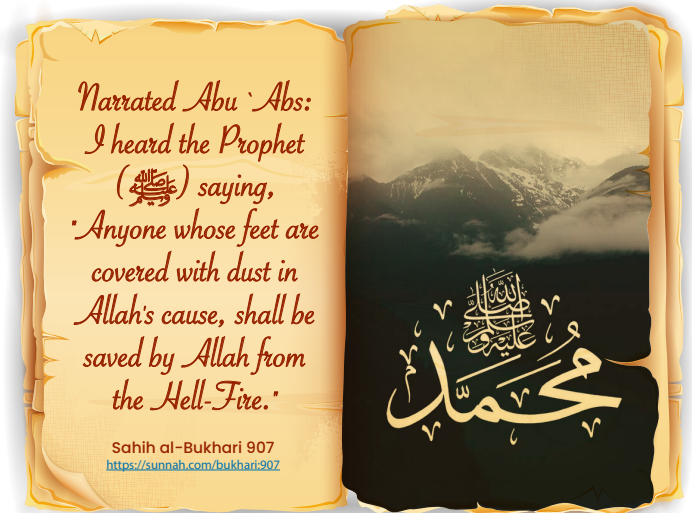 Narrated Abu `Abs:
I heard the Prophet
(ﷺ) saying,
"Anyone whose feet are
covered with dust in
Allah's cause, shall be
saved by Allah from
the Hell-Fire."
Sahih al-Bukhari 907
https://sunnah.com/bukhari:907
صلى الله عليه وسلم
محمد